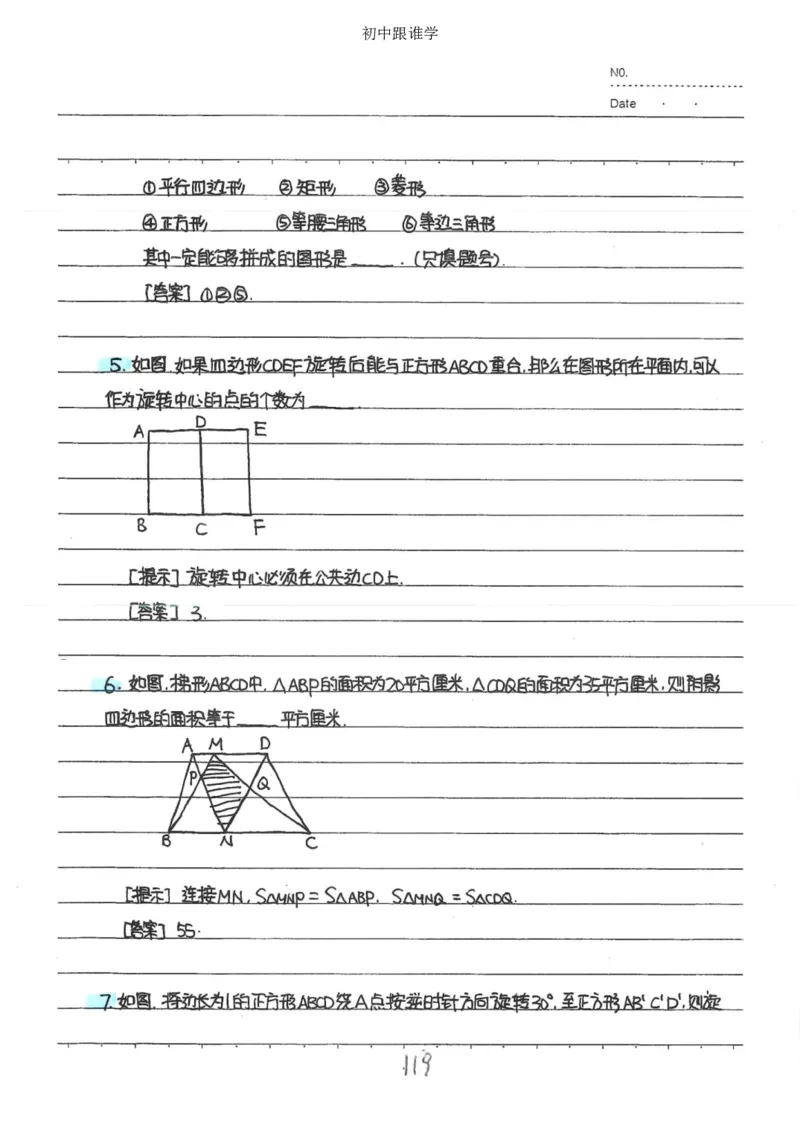 初中跟谁学
NO.
Date · ·
①平行四边形 ②矩形 ③菱形
④正方形 ⑤等腰三角形 ⑥等边三角形
其中一定能够拼成的图形是____.(只填题号).
[答案]①②⑤.
5.如图.如果四边形CDEF旋转后能与正方形ABCD重合,那么在图形所在平面内,可以
作为旋转中心的点的个数为____
A D E
B C F
[提示]旋转中心必须在公共边CD上.
[答案]3.
6.如图,梯形ABCD中,△ABP的面积为20平方厘米,△CDQ的面积为35平方厘米,则阴影
四边形的面积等于____平方厘米.
A M D
P Q
B N C
[提示]连接MN,S△MNP=S△ABP,S△MNQ=S△CDQ.
[答案]55.
7.如图,将边长为1的正方形ABCD绕A点按逆时针方向旋转30°,至正方形AB'C'D',则旋
119